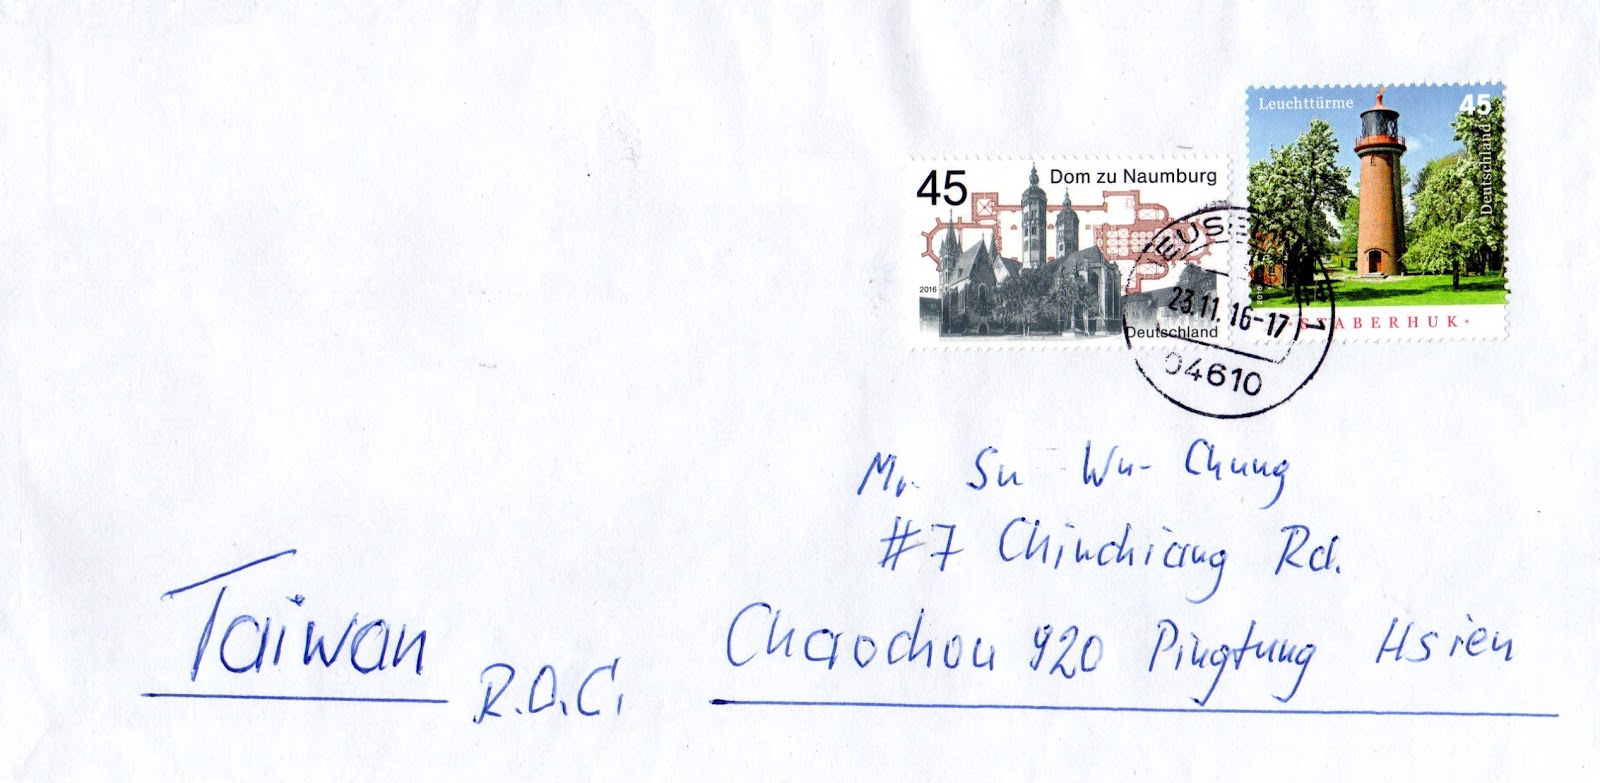 Leuchttürme 45
Deutschland
2016
STABERHUK
45 Dom zu Naumburg
2016
Deutschland
23.11.16-17
04610
Mr. Su Wu-Chung
#7 Chinchiang Rd.
Chaochou 920 Pingtung Hsien
Taiwan
R.O.C.